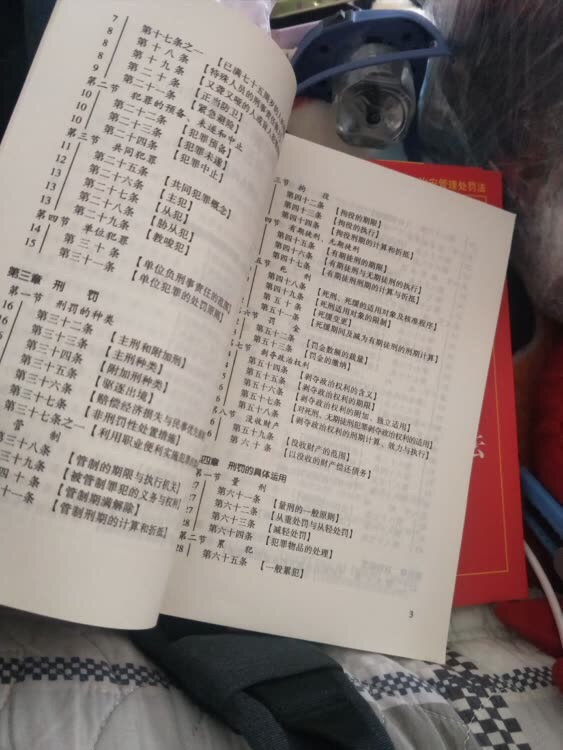 7 第十七条之一 【已满七十五周岁的人
8 第十八条 【特殊人员的刑事责任能
8 第十九条 【又聋又哑的人或盲人犯
8 第二十条 【正当防卫】
9 第二十一条 【紧急避险】
第二节 犯罪的预备、未遂和中止
10 第二十二条 【犯罪预备】
10 第二十三条 【犯罪未遂】
10 第二十四条 【犯罪中止】
第三节 共同犯罪
11 第二十五条 【共同犯罪概念】
12 第二十六条 【主犯】
13 第二十七条 【从犯】
13 第二十八条 【胁从犯】
13 第二十九条 【教唆犯】
第四节 单位犯罪
14 第三十条 【单位负刑事责任的范围】
15 第三十一条 【单位犯罪的处罚原则】
第三章 刑 罚
第一节 刑罚的种类
16 第三十二条 【主刑和附加刑】
第三十三条 【主刑种类】
第三十四条 【附加刑种类】
第三十五条 【驱逐出境】
第三十六条 【赔偿经济损失与民事优先
第三十七条 【非刑罚性处置措施】
第三十七条之一 【利用职业便利实施犯罪
管 制
三十八条 【管制的期限与执行机关】
三十九条 【被管制罪犯的义务与权利】
四十条 【管制期满解除】
十一条 【管制刑期的计算和折抵】
三节 拘 役
第四十二条 【拘役的期限】
第四十三条 【拘役的执行】
第四十四条 【拘役刑期的计算和折抵】
四节 有期徒刑、无期徒刑
第四十五条 【有期徒刑的期限】
第四十六条 【有期徒刑与无期徒刑的执行】
第四十七条 【有期徒刑刑期的计算与折抵】
死 刑
第四十八条 【死刑、死缓的适用对象及核准程序】
第四十九条 【死刑适用对象的限制】
第五十条 【死缓变更】
第五十一条 【死缓期间及减为有期徒刑的刑期计算】
六节 罚 金
第五十二条 【罚金数额的裁量】
第五十三条 【罚金的缴纳】
七节 剥夺政治权利
第五十四条 【剥夺政治权利的含义】
第五十五条 【剥夺政治权利的期限】
第五十六条 【剥夺政治权利的附加、独立适用】
第五十七条 【对死刑、无期徒刑犯罪剥夺政治权利的适用】
第五十八条 【剥夺政治权利的刑期计算、效力与执行】
八节 没收财产
第五十九条 【没收财产的范围】
第六十条 【以没收的财产偿还债务】
四章 刑罚的具体运用
第一节 量 刑
27 第六十一条 【量刑的一般原则】
27 第六十二条 【从重处罚与从轻处罚】
第六十三条 【减轻处罚】
第六十四条 【犯罪物品的处理】
第二节 累 犯
28 第六十五条 【一般累犯】
3
管理处罚法
法